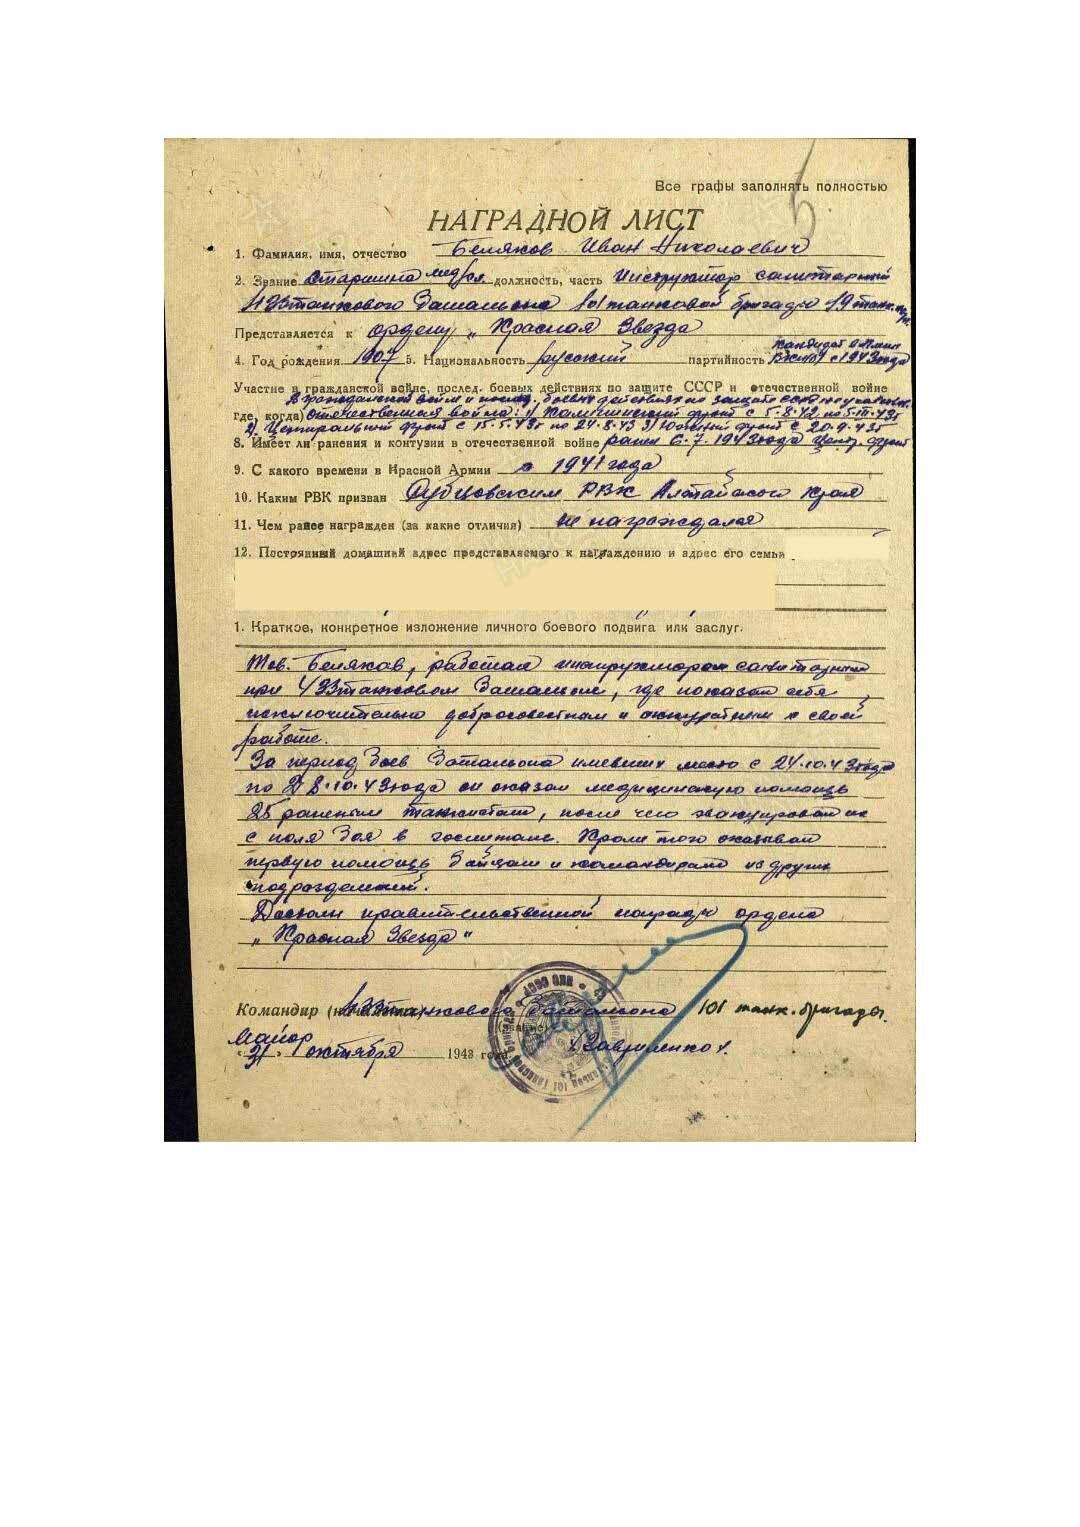 Все графы заполнять полностью
НАГРАДНОЙ ЛИСТ
1. Фамилия, имя, отчество Беляков Иван Николаевич
2. Звание Старшина мед/сл. должность, часть Инструктор санитарный
433танкового Батальона 101 танковой бригады 19 танк.
Представляется к ордену „Красная Звезда
4. Год рождения 1907 5. Национальность русский партийность кандидат в члены
ВКП(б) с 1943года
Участие в гражданской войне, послед. боевых действиях по защите СССР и отечественной войне
В гражданской войне и послед. боевых действиях по защите СССР не участвов.
где, когда) отечественная война: 1) Калининский фронт с 5.8.42 по 5.III.43г
2) Центральный фронт с 15.5.43г по 24.8.43 3) Южный фронт с 20.9.43г
8. Имеет ли ранения и контузии в отечественной войне ранен 6.7.1943года Центр. фронт
9. С какого времени в Красной Армии с 1941года
10. Каким РВК призван Рубцовским РВК Алтайского края
11. Чем ранее награжден (за какие отличия) не награждался
12. Постоянный домашний адрес представляемого к награждению и адрес его семьи
1. Краткое, конкретное изложение личного боевого подвига или заслуг.
Тов. Беляков, работая инструктором санитарным
при 433танковом Батальоне, где показал себя
исключительно добросовестным и аккуратным к своей
работе.
За период боев Батальона имевших место с 24.10.43года
по 28.10.43года он оказал медицинскую помощь
25 раненым танкистам, после чего эвакуировал их
с поля боя в госпиталь. Кроме того оказывал
первую помощь бойцам и командирам из других
подразделений.
Достоин правительственной награды ордена
„Красная Звезда"
Командир (начальник) танкового батальона 101 танк. бригады.
Майор (звание)
„31" октября 1943 года. /Гавриленко/.